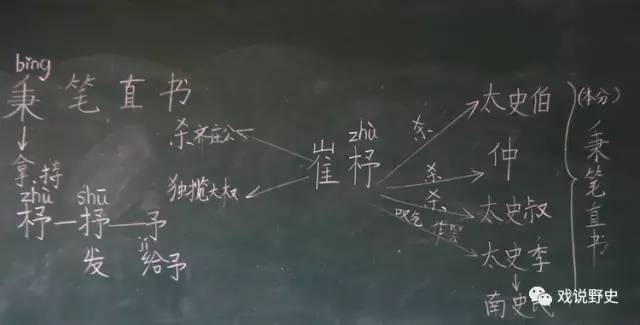 bǐng
秉笔直书
拿、持
zhù shū
杼—抒—予
发 给予
杀齐庄公
独揽大权
zhù
崔杼
杀 太史伯
杀 仲
杀 太史叔
叹气 太史季
南史氏
(本分)
秉笔直书
戏说野史